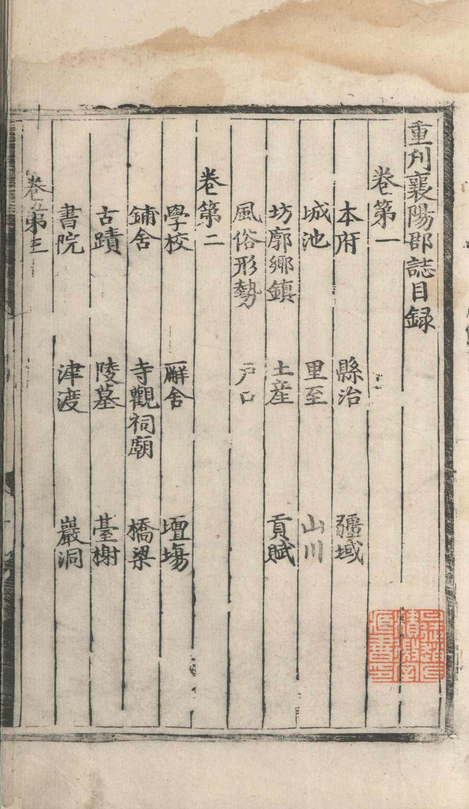 重刋襄陽郡誌目録
卷第一
本府 縣治 疆域
城池 里至 山川
坊廓鄉鎮 土産 貢賦
風俗形勢 戶口
卷第二
學校 廨舍 壇場
鋪舍 寺觀祠廟 橋梁
古蹟 陵墓 臺榭
書院 津渡 巖洞
卷第三